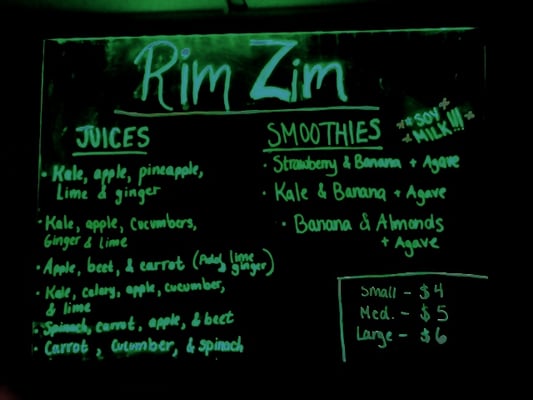 Rim Zim
JUICES
• Kale, apple, pineapple,
Lime & ginger
• Kale, apple, Cucumbers,
Ginger & lime
• Apple, beet, & carrot (Add lime
& ginger)
• Kale, celary, apple, cucumber,
& lime
• Spinach, carrot, apple, & beet
• Carrot, Cucumber, & spinach
SMOOTHIES
* SOY
MILK!!!
• Strawberry & Banana + Agave
• Kale & Banana + Agave
• Banana & Almonds
+ Agave
Small - $4
Med. - $5
Large - $6